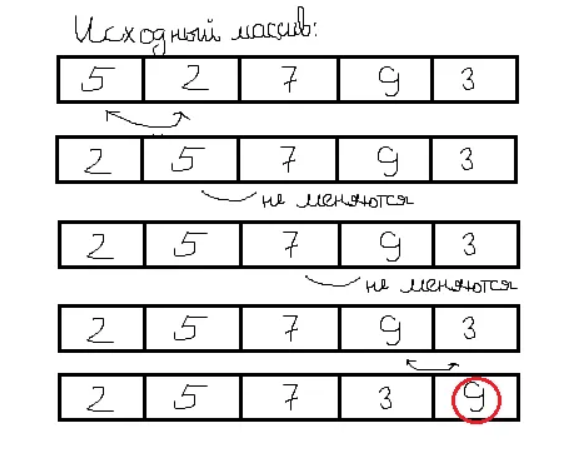 Исходный массив:
5 2 7 9 3
2 5 7 9 3
не меняются
2 5 7 9 3
не меняются
2 5 7 9 3
2 5 7 3 9